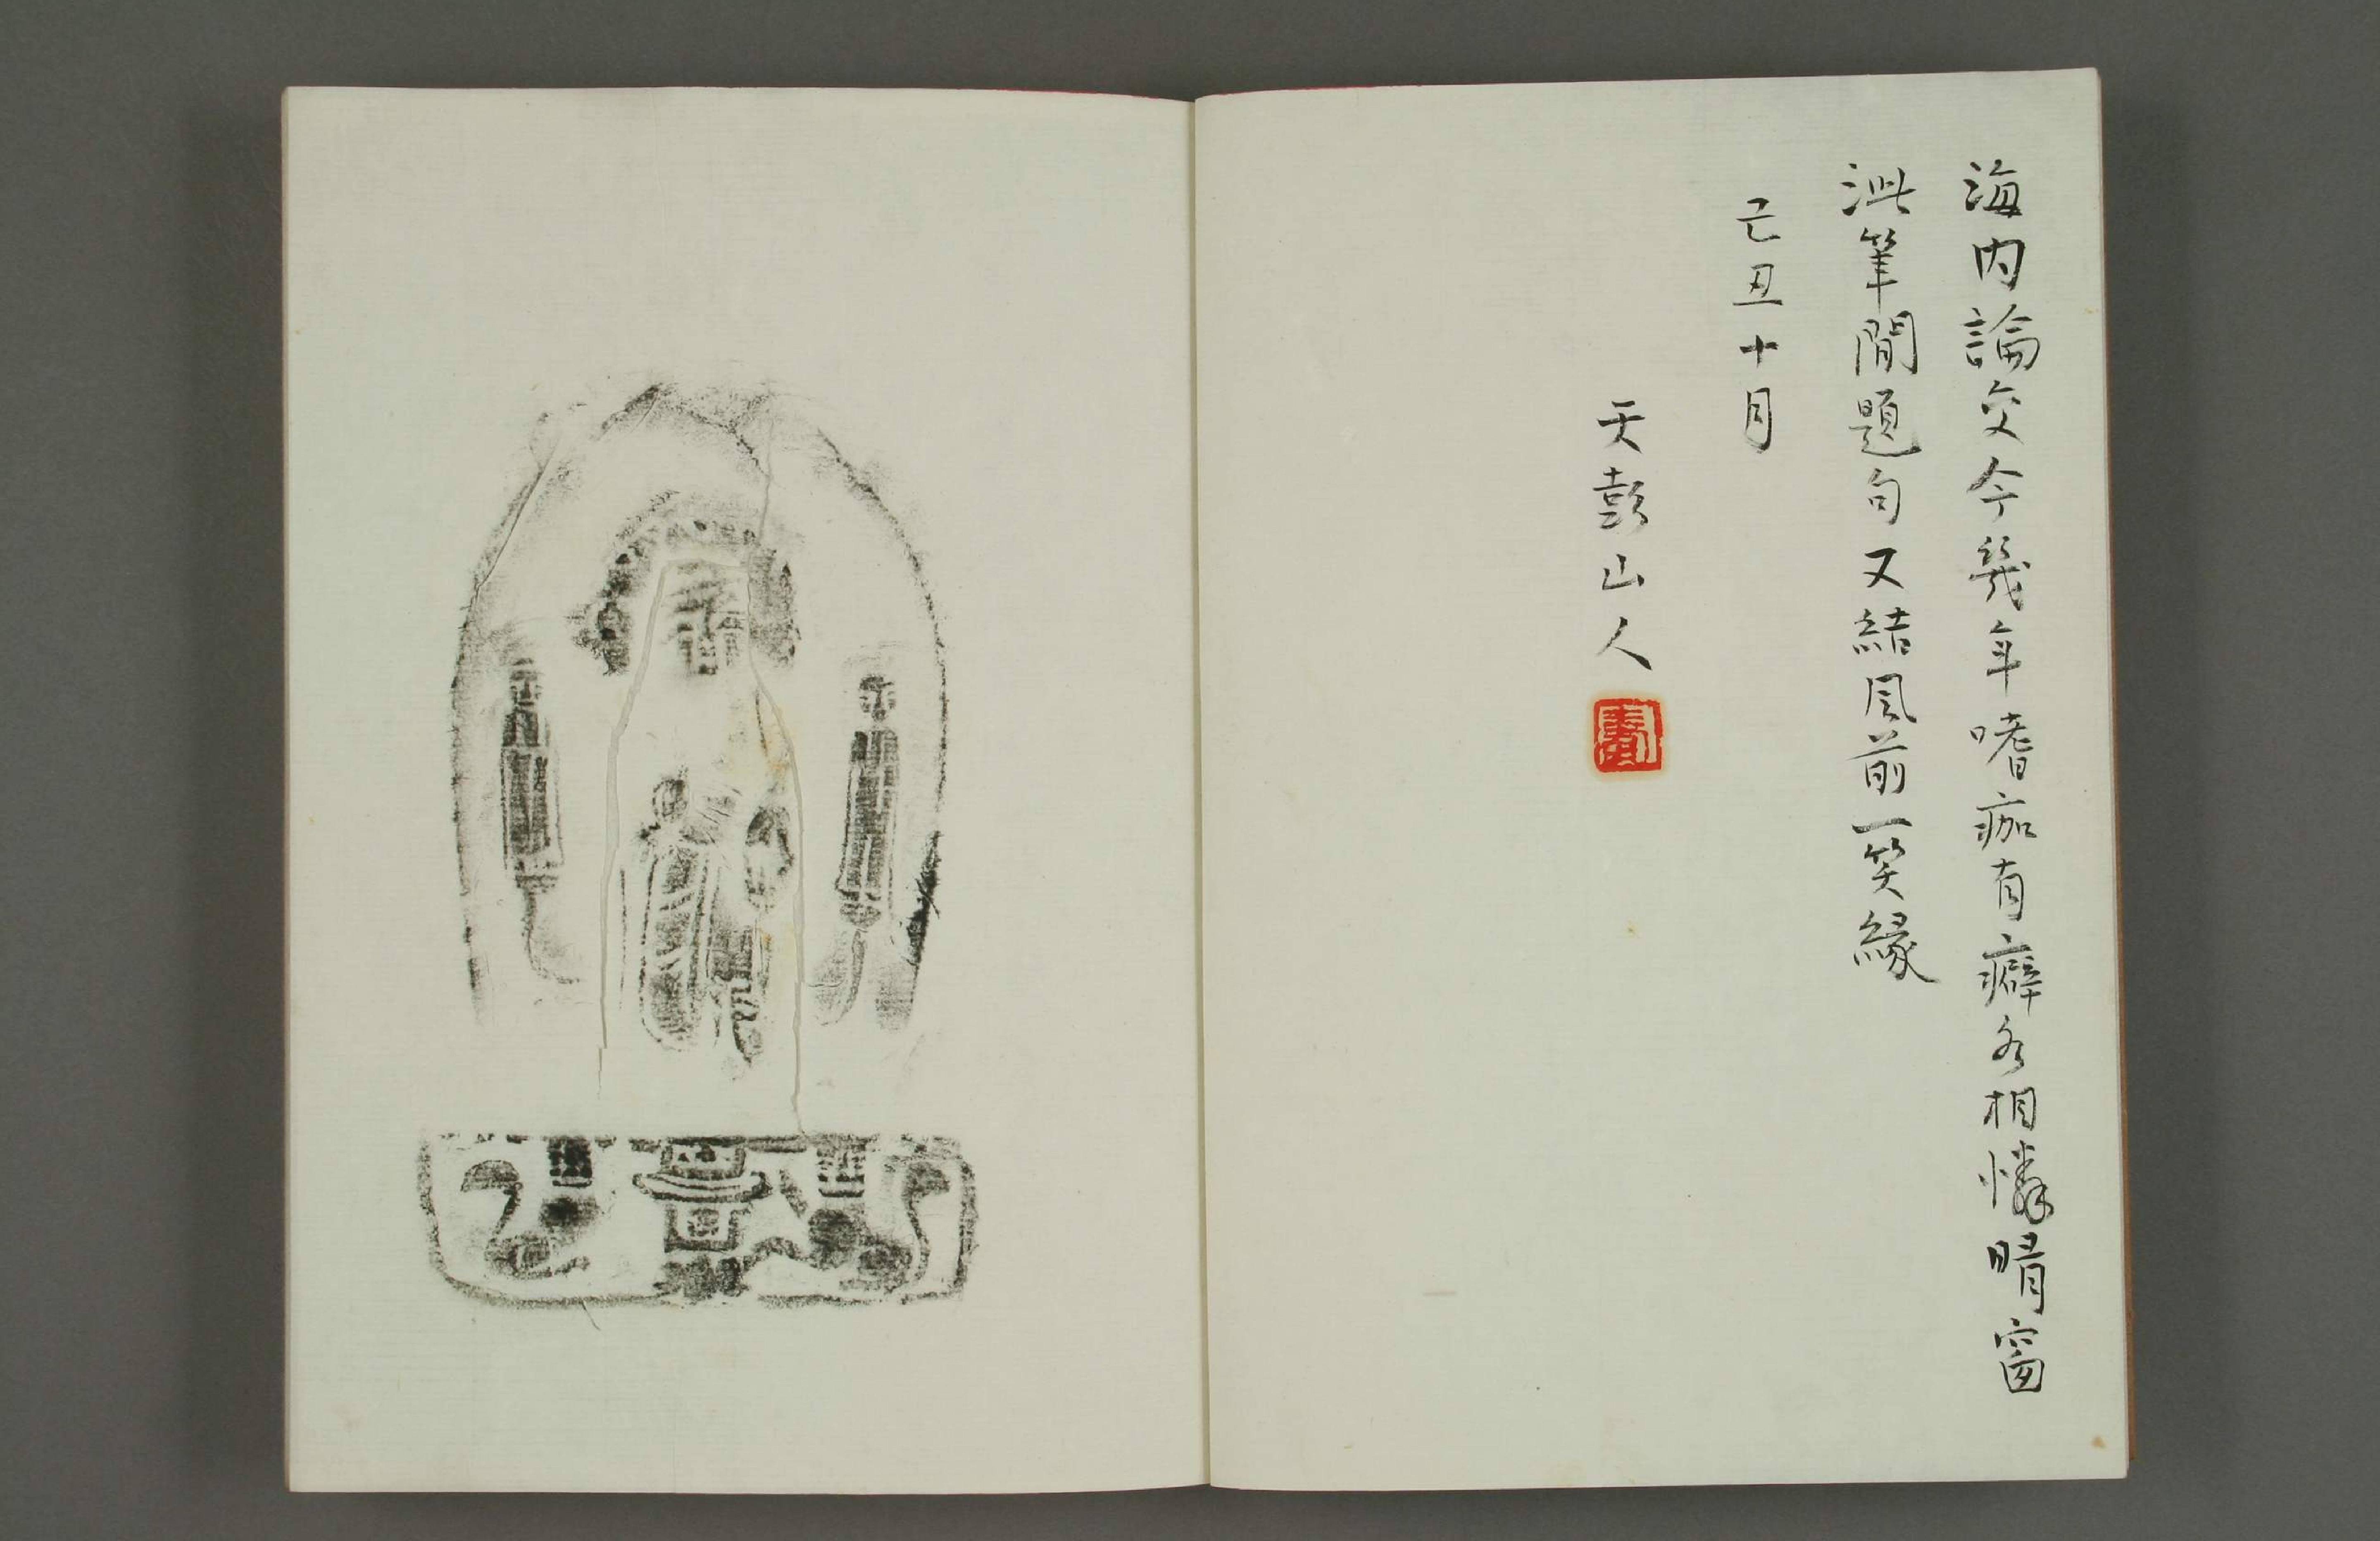 海内論交今幾年嗜痂有癖各相憐晴窗
泚筆閒題句又結風前一笑緣
己丑十月
天彭山人